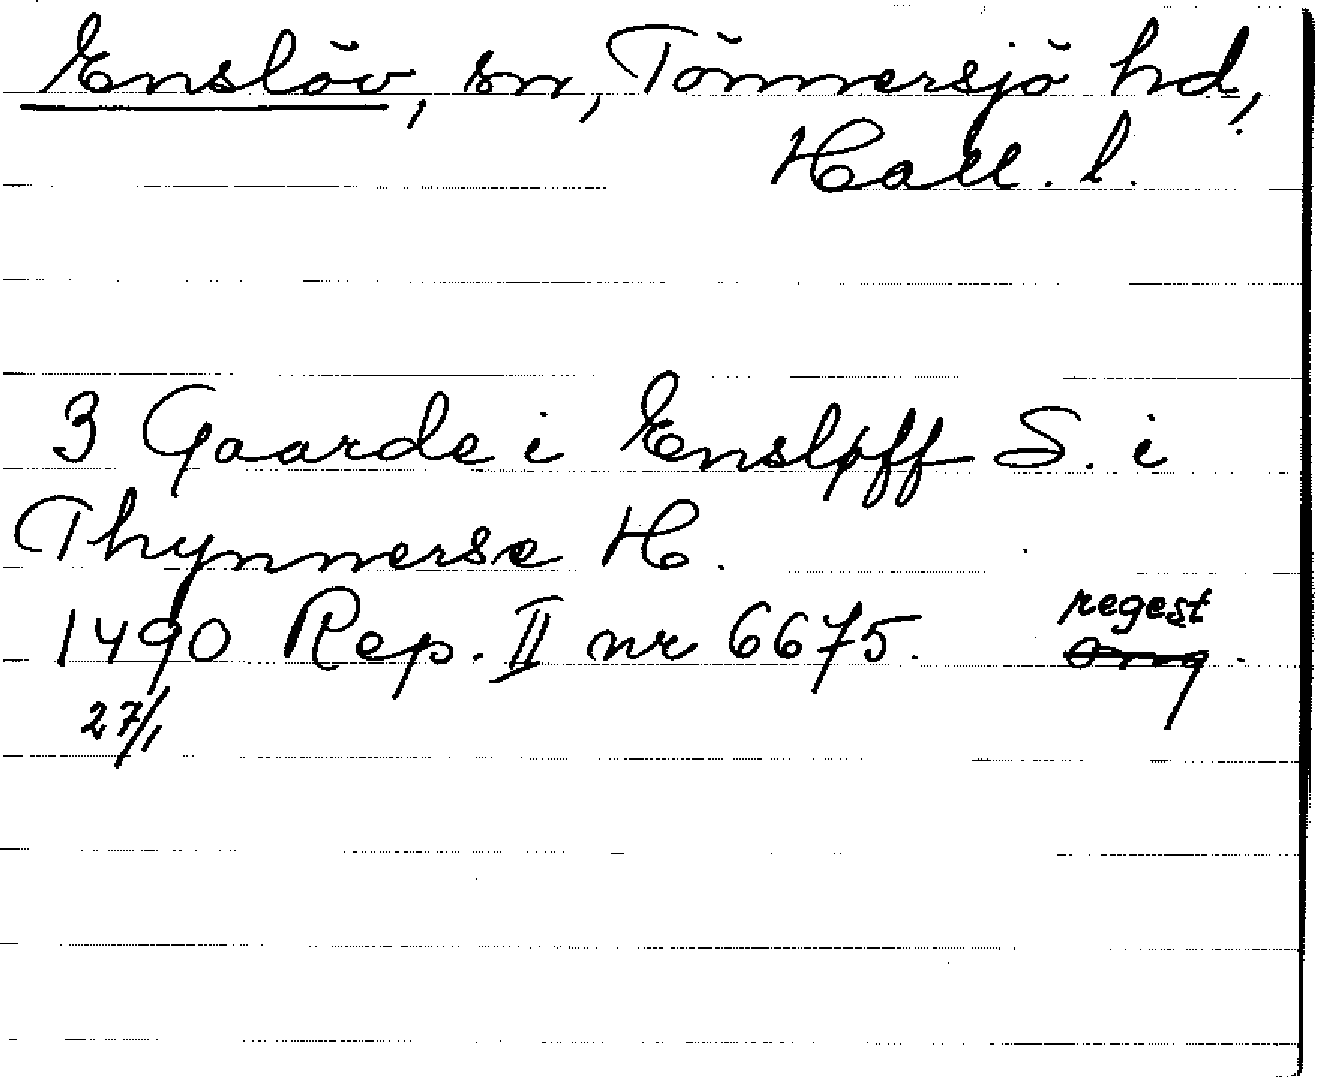 Enslöv, sn, Tönnersjö hd,
Hall. l.
3 Gaarde i Ensløff S. i
Thynnerse H.
regest
1490 Rep. II nr 6675.
27/1